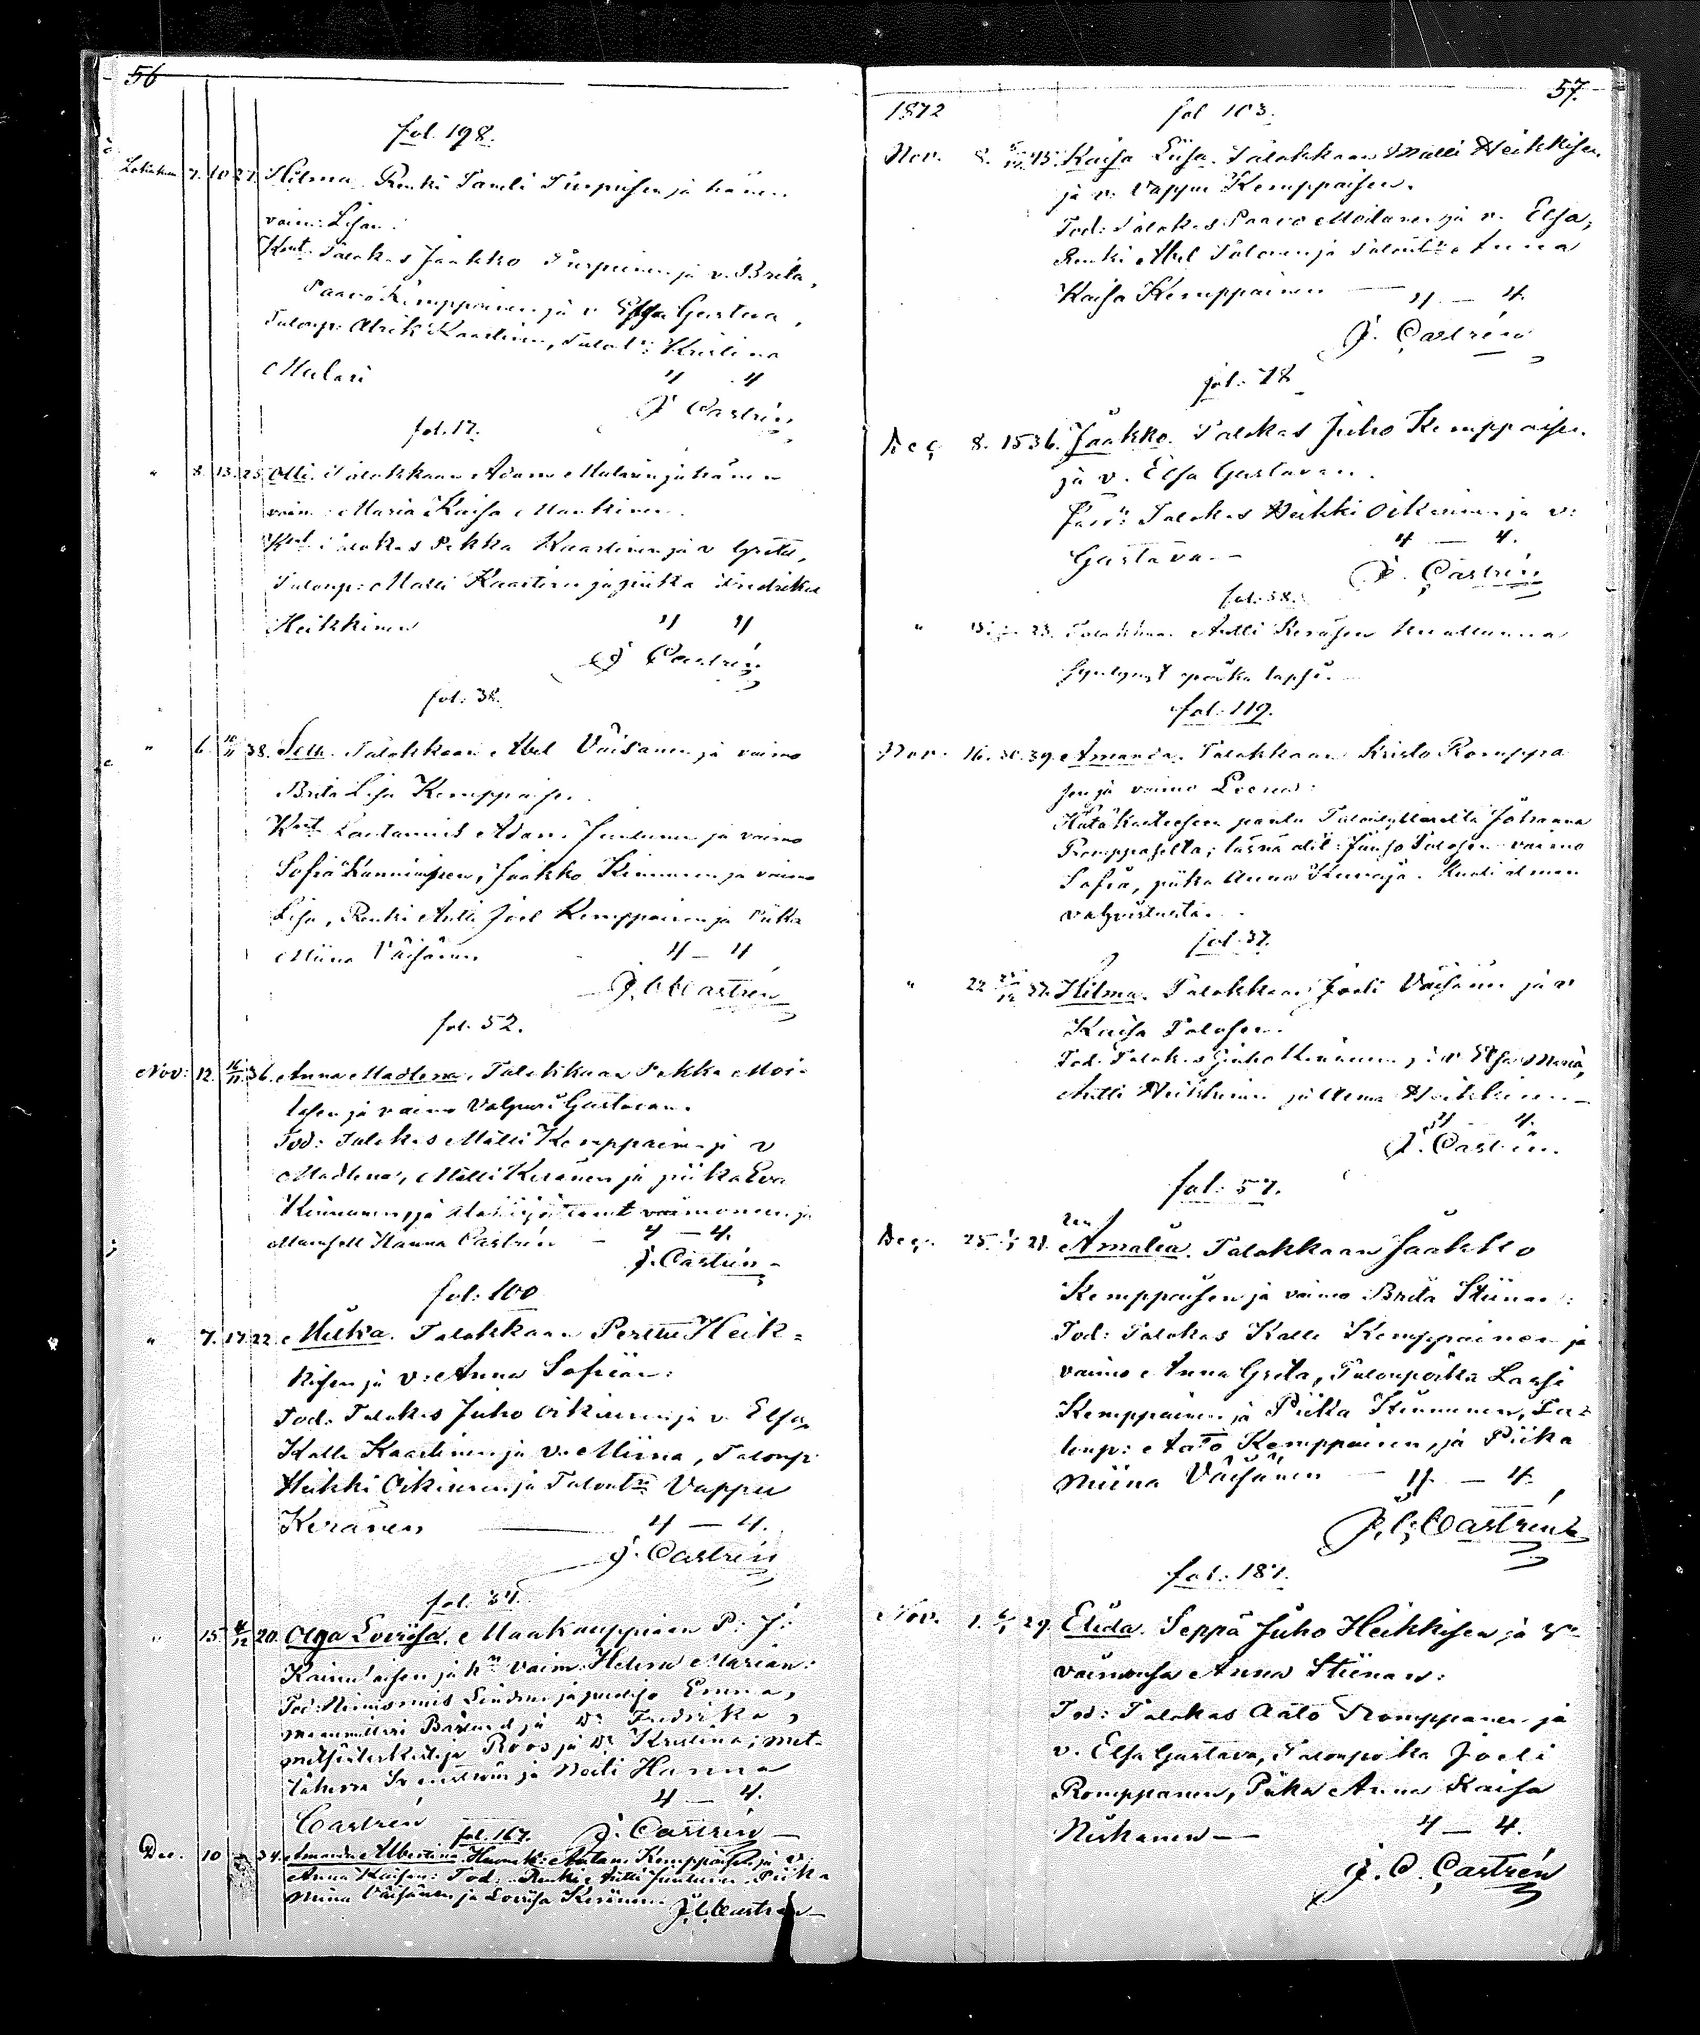 56
fol. 198.
Lokakuu 7. 10 27. Hilma. Renki Taneli Turpeisen ja hänen
vaim: Lisan.
Kut. Talokas Jaakko Turpeinen ja v. Brita,
Paavo Kemppainen ja v. Elsa Gustava,
Talonp: Alrik Kaartinen, Talont: Kristina
Mulari 4 4
J Castrén
fol. 17.
" 8. 13. 25 Olli. Talokkaan Adam Mularin ja hänen
vaim: Maria Kaisa
Kut. Talokas Pekka Kaartinen ja v Greta,
Talonp: Matti Kaartinen ja piika Fredrika
Heikkinen 4 4
J Castrén
fol: 38.
" 6. 10/11 38. Talokkaan Abel Väisänen ja vaimo
Brita Lisa Kemppaisen.
Kut. Lautamies Adam Juntunen ja vaimo
Sofia Jaakko Kinnunen ja vaimo
Lisa, Renki Antti Joel Kemppainen ja Piika
Miina Väisänen 4 – 4
J. C. Castrén
fol. 52.
Nov: 12. 16/11 36. Anna Madlena. Talokkaan Pekka Moi-
lasen ja vaimo Valpuri Gustavan.
Tod: Talokas Matti Kemppainen ja v
Madlena, Matti Keränen ja piika Eva
Kinnunen, ja vaimoneen ja
Mamsell Hanna Castrén – 4 – 4.
J. Castrén
fol: 100
" 7. 17 22. Miikka. Talokkaan Perttu Heik=
kisen ja v: Anna Sofiian:
Tod: Talokas Juho Oikarinen ja v. Elsa,
Kalle Kaartinen ja v. Miina, Talonp:
Heikki Oikarinen ja Talont: Vappu
Keränen 4 – 4.
J. Castrén
fol. 34.
" 15. 20. Olga Lovisa. Maakauppiaan P: J:
ja hn vaim: Helena Marian:
Tod: Nimismies ja Emma,
ja Dr Fredrika,
Roos ja Dr Kristina; met-
ja Neiti Hanna
4 – 4.
Castrén J. Castrén –
fol. 167.
Dec. 10 34. Amanda Albertina. Kemppaisen ja v:
Anna Kaisan: Tod: Renki Antti Juntunen Piika
Miina Väisänen ja Lovisa Keränen. J. C. Castrén
57.
1872 fol 103.
Nov. 8. 45. Kaisa Liisa. Talokkaan Matti Heikkisen
ja v. Vappu Kemppaisen.
Tod: Talokas Paavo Moilanen ja v. Elsa,
Renki Abel Talonen ja Talont: Anna
Kaisa Kemppainen — 4 – 4.
J. Castrén
fol: 78
Dec. 8. 15 36. Jaakko. Talokas Juho Kemppaisen
ja v. Elsa Gustavan.
Talokas Heikki Oikarinen ja v:
Gustava. – 4 – 4.
J. Castrén
fol: 38.
" 23. Talokkaan Antti Keräsen kuolluna
syntynyt poika lapsi. –
fol: 119.
Nov. 16. 30. 39. Amanda. Talokkaan Kristo Romppa
sen ja vaimo Leena:
Hätäkasteesen pantu Talontyttäreltä Johanna
Romppaselta; läsnä olit: Juho Talosen vaimo
Sofia, piika Anna Kuoli ilman
vahvistusta.
fol. 37.
" 22 37. Hilma. Talokkaan Joeli Väisäsen ja v
Kaisa Talosen.
Tod. Talokas Juho Kinnunen ja v. Elsa Maria,
Antti Heikkinen ja Anna Heikkinen –
4 4.
J. Castrén.
fol: 57.
Dec. 25. 21. Amalia. Talokkaan Jaakko
Kemppaisen ja vaimo Brita Stiinan:
Tod: Talokas Kalle Kemppainen ja
vaimo Anna Greta, Talonpoika Lassi
Kemppainen ja Piika Kinnunen, Ta=
lonp: Aato Kemppainen, ja Piika
Miina Väisänen — 4 – 4.
J. C. Castrén
fol: 187.
Nov. 1. 29. Elida. Seppä Juho Heikkisen ja
vaimonsa Anna Stiinan:
Tod: Talokas Aato Romppanen ja
v. Elsa Gustava, Talonpoika Joeli
Romppanen, Piika Anna Kaisa
Niskanen — 4 – 4.
J. C. Castrén